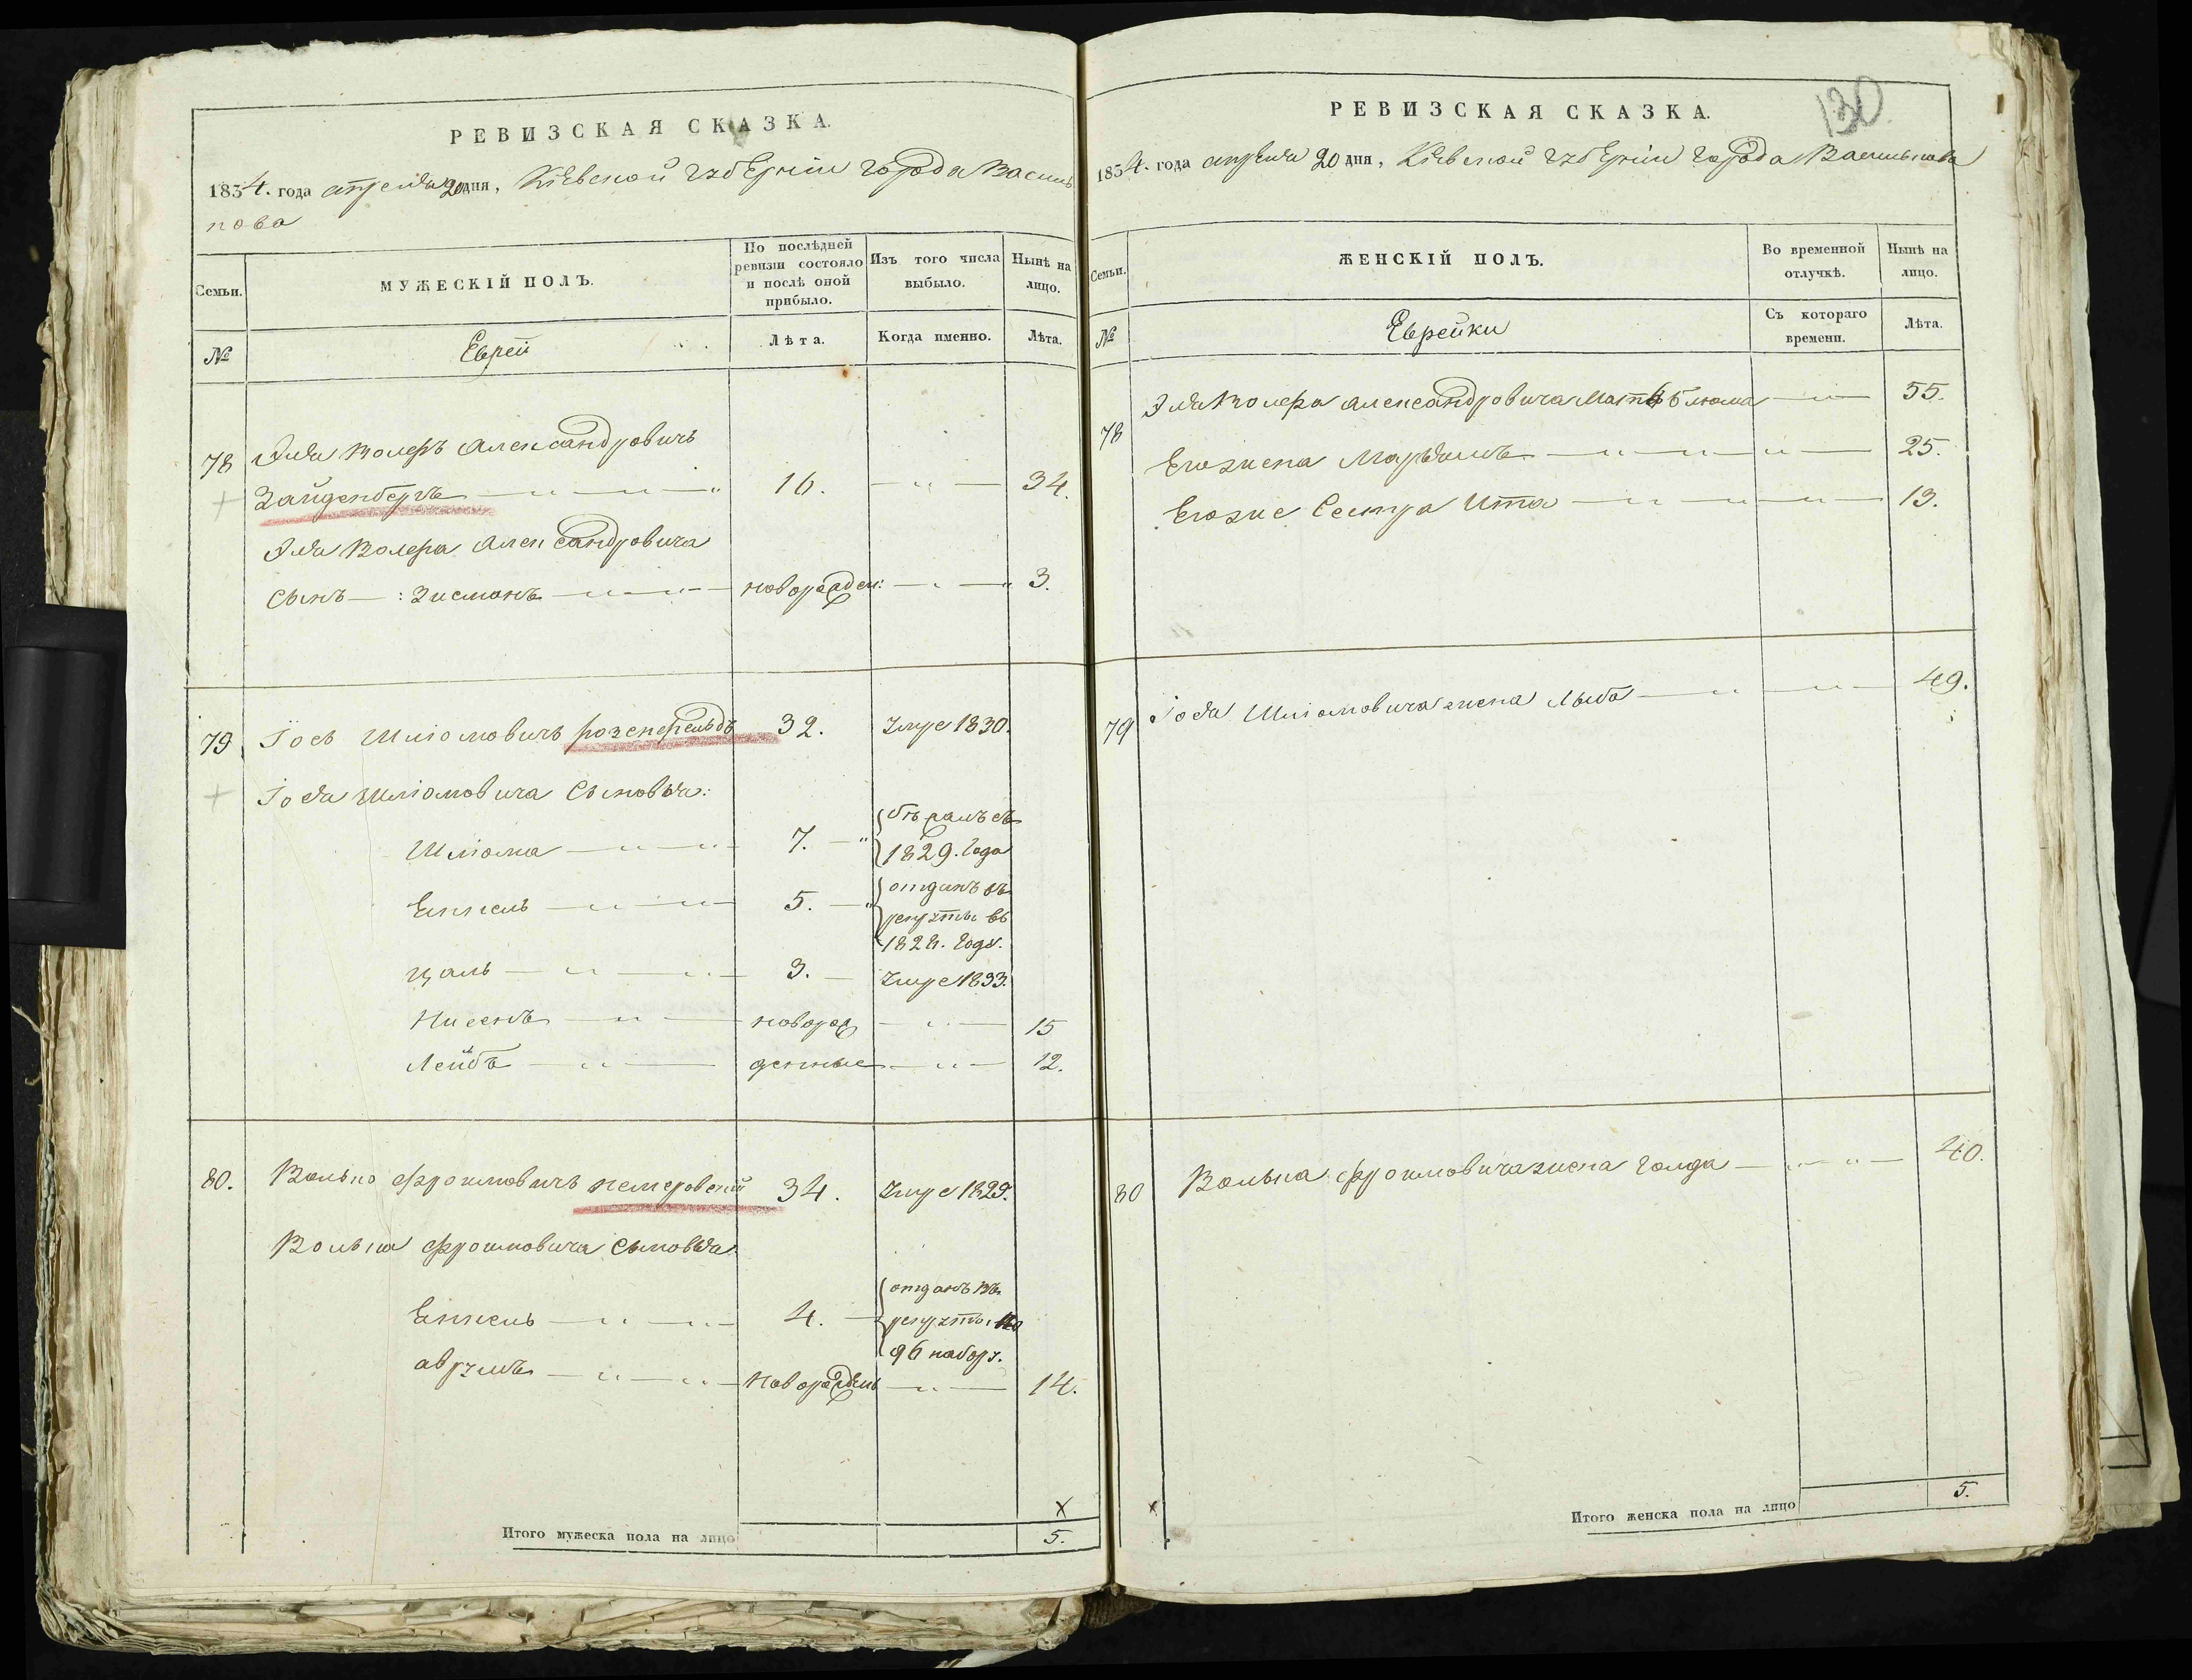 РЕВИЗСКАЯ СКАЗКА.
1834. года апреля 20 дня, Кіевской губерніи города Василь
кова
Семьи.
МУЖЕСКІЙ ПОЛЪ.
По послѣдней ревизіи состояло и послѣ оной прибыло.
Изъ того числа выбыло.
Нынѣ на лицо.
№
Еврей
Лѣта.
Когда именно.
Лѣта.
78 Александровичъ
Зайденбергъ 16. 34.
Александровича
сынъ: Зисманъ новорожден: 3.
79 Іось Шліомовичъ розенфельдъ 32. умре 1830.
Шліомовича сыновья:
Шліома 7. съ
1829. года
Еннель 5. отданъ въ
рекруты въ
году.
Цаль 3. умре 1833.
Нисенъ новорож 15
Лейбъ денные 12.
80. Волько Фроимовичъ немеровскій 34. умре 1829.
Волька Фроимовича сыновья
4. отданъ въ
рекруты по
96 набору.
аврумъ новорожденъ 14.
Итого мужеска пола на лицо 5.
РЕВИЗСКАЯ СКАЗКА.
130
1834. года апреля 20 дня, Кіевской губерніи города Василькова
Семьи.
ЖЕНСКІЙ ПОЛЪ.
Во временной отлучкѣ.
Нынѣ на лицо.
№
Еврейки
Съ котораго времени.
Лѣта.
78 Александровича мать блюма 55.
Его жена 25.
Его же сестра Ита 13.
79 Шліомовича жена 49.
80 Волька Фроимовича жена Голда 40.
Итого женска пола на лицо 5.